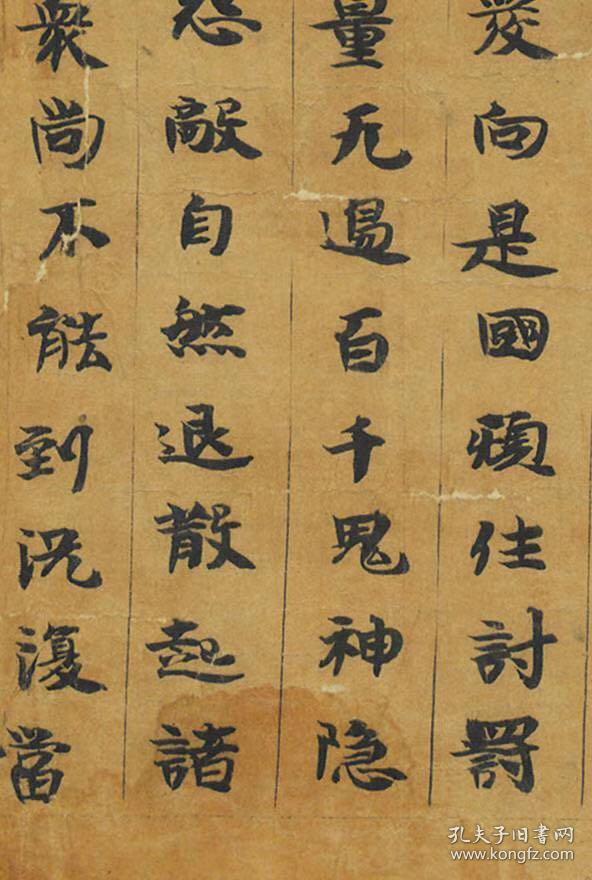 發向是國往討罸
量无邊百千鬼神隐
怨敵自然退散起諸
衆尚不能到况復當
孔夫子旧書网
www.kongfz.com